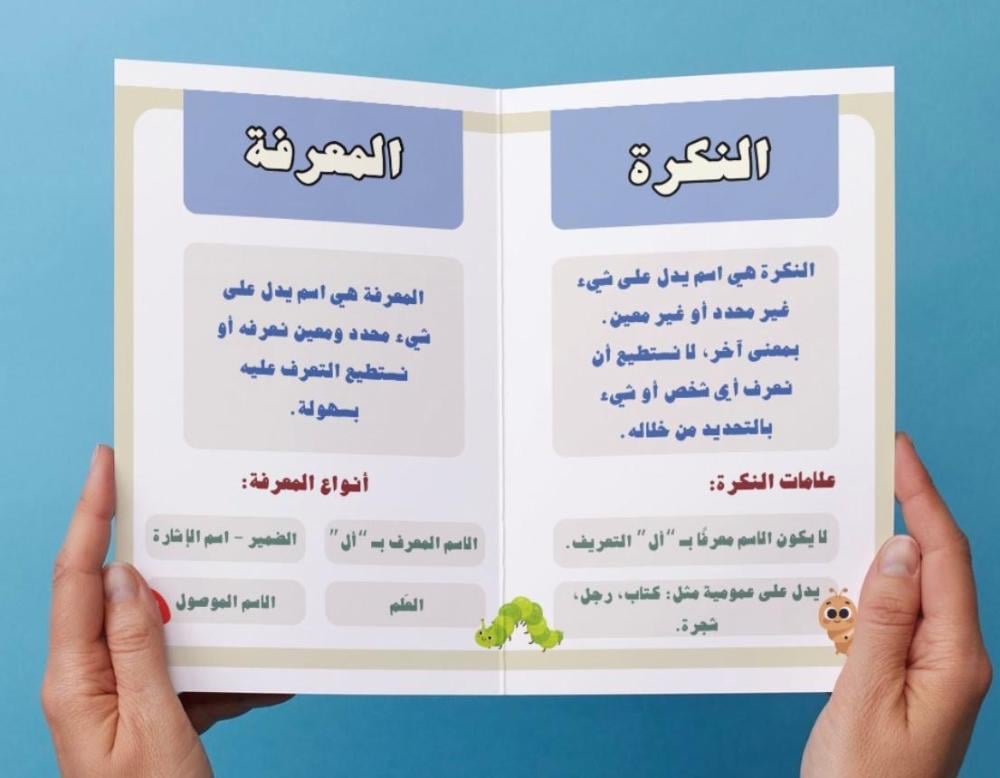 النكرة
النكرة هي اسم يدل على شيء
غير محدد أو غير معين.
بمعنى آخر، لا نستطيع أن
نعرف أي شخص أو شيء
بالتحديد من خلاله.
علامات النكرة:
لا يكون الاسم معرفًا بـ "أل" التعريف.
يدل على عمومية مثل: كتاب، رجل،
شجرة.
المعرفة
المعرفة هي اسم يدل على
شيء محدد ومعين نعرفه أو
نستطيع التعرف عليه
بسهولة.
أنواع المعرفة:
الاسم المعرف بـ "أل"
الضمير - اسم الإشارة
العَلم
الاسم الموصول